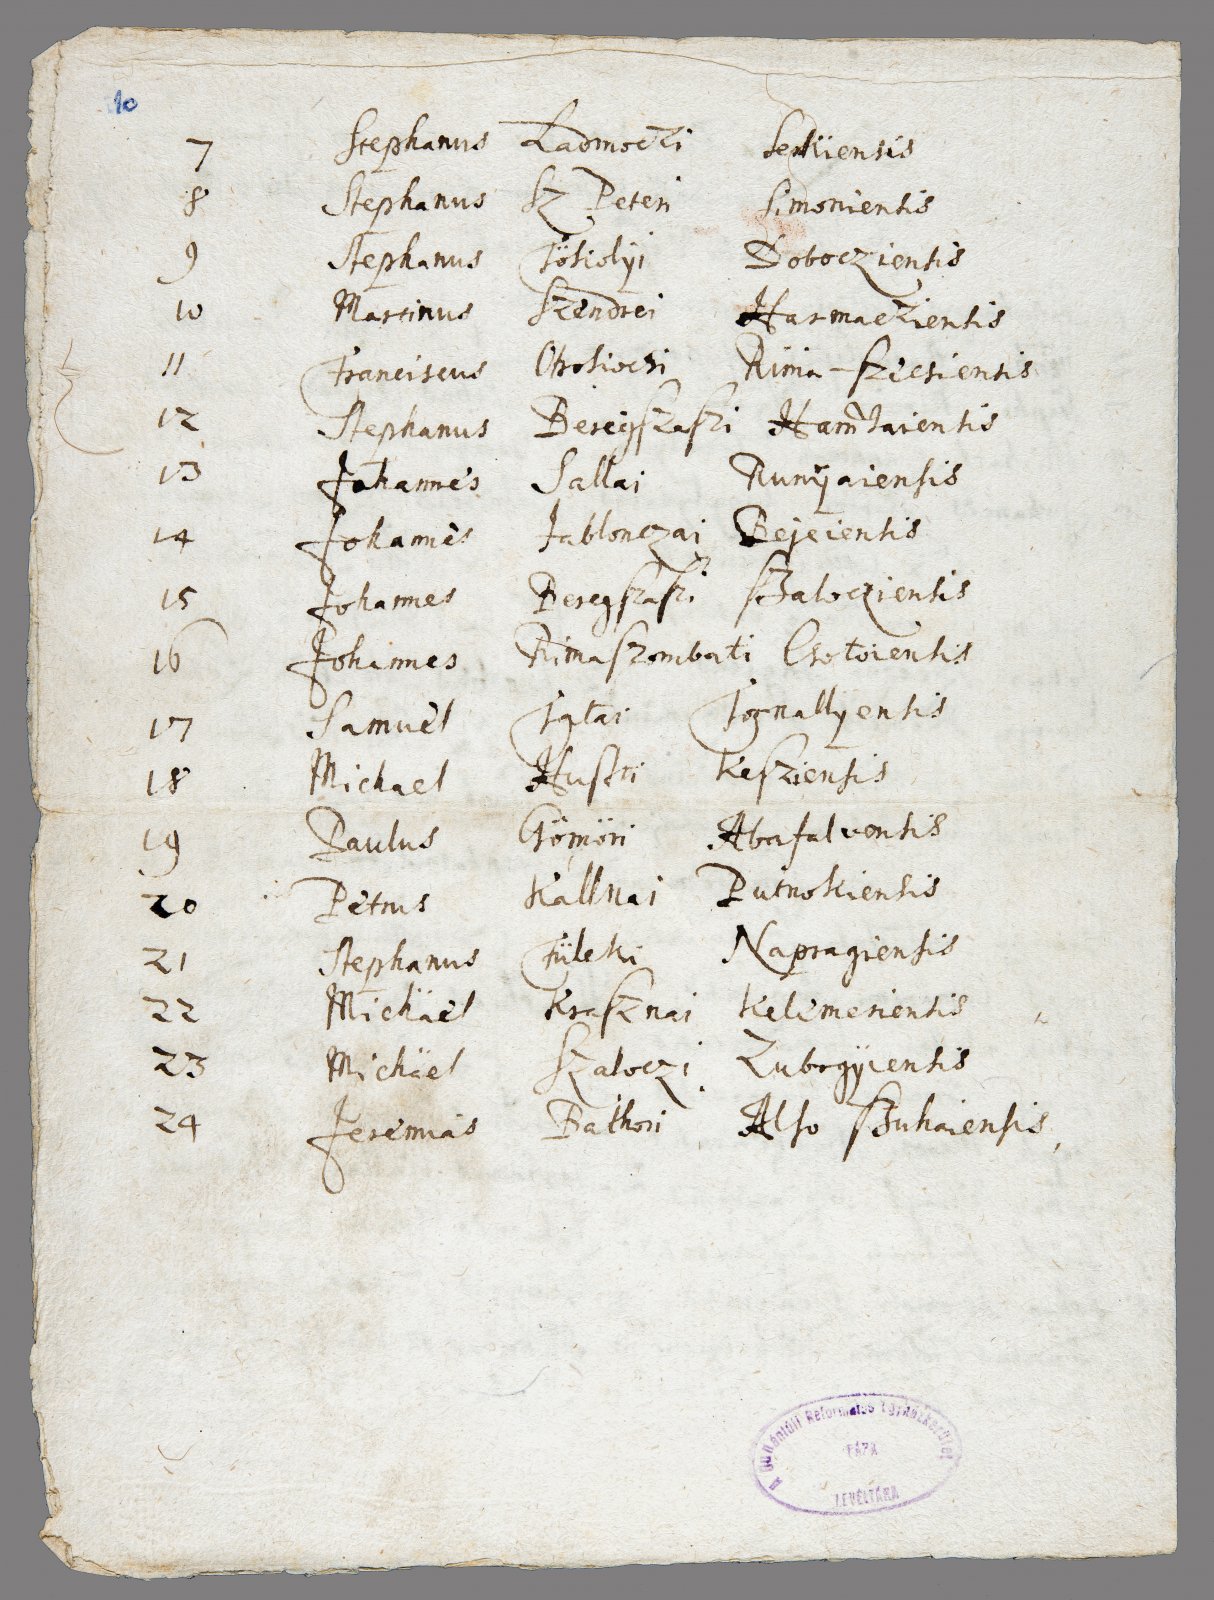 10
7 Stephanus Ladmoczi Serkiensis
8 Stephanus Sz Peteri Simoniensis
9 Stephanus Dobocziensis
10 Martinus Szendrei Harmacziensis
11 Franciscus Otrokocsi Rima-szecsiensis
12 Stephanus Beregszaszi
13 Johannes Sallai Runÿaiensis
14 Johannes Jablonczai Bejeiensis
15 Johannes Beregszaszi Szalocziensis
16 Johannes Rimaszombati
17 Samuel Tatai Tornallyensis
18 Michael Husti Kesziensis
19 Paulus Gömöri Abafalvensis
20 Petrus Kallnai Putnokiensis
21 Stephanus Füleki Napragiensis
22 Michäel Krasznai Kelemeriensis
23 Michäel Szaloczi Zubogÿiensis
24 Jeremias Bathori Also Szuhaiensis
A Dunántúli Református Egyházkerület
PÁPA
LEVÉLTÁRA